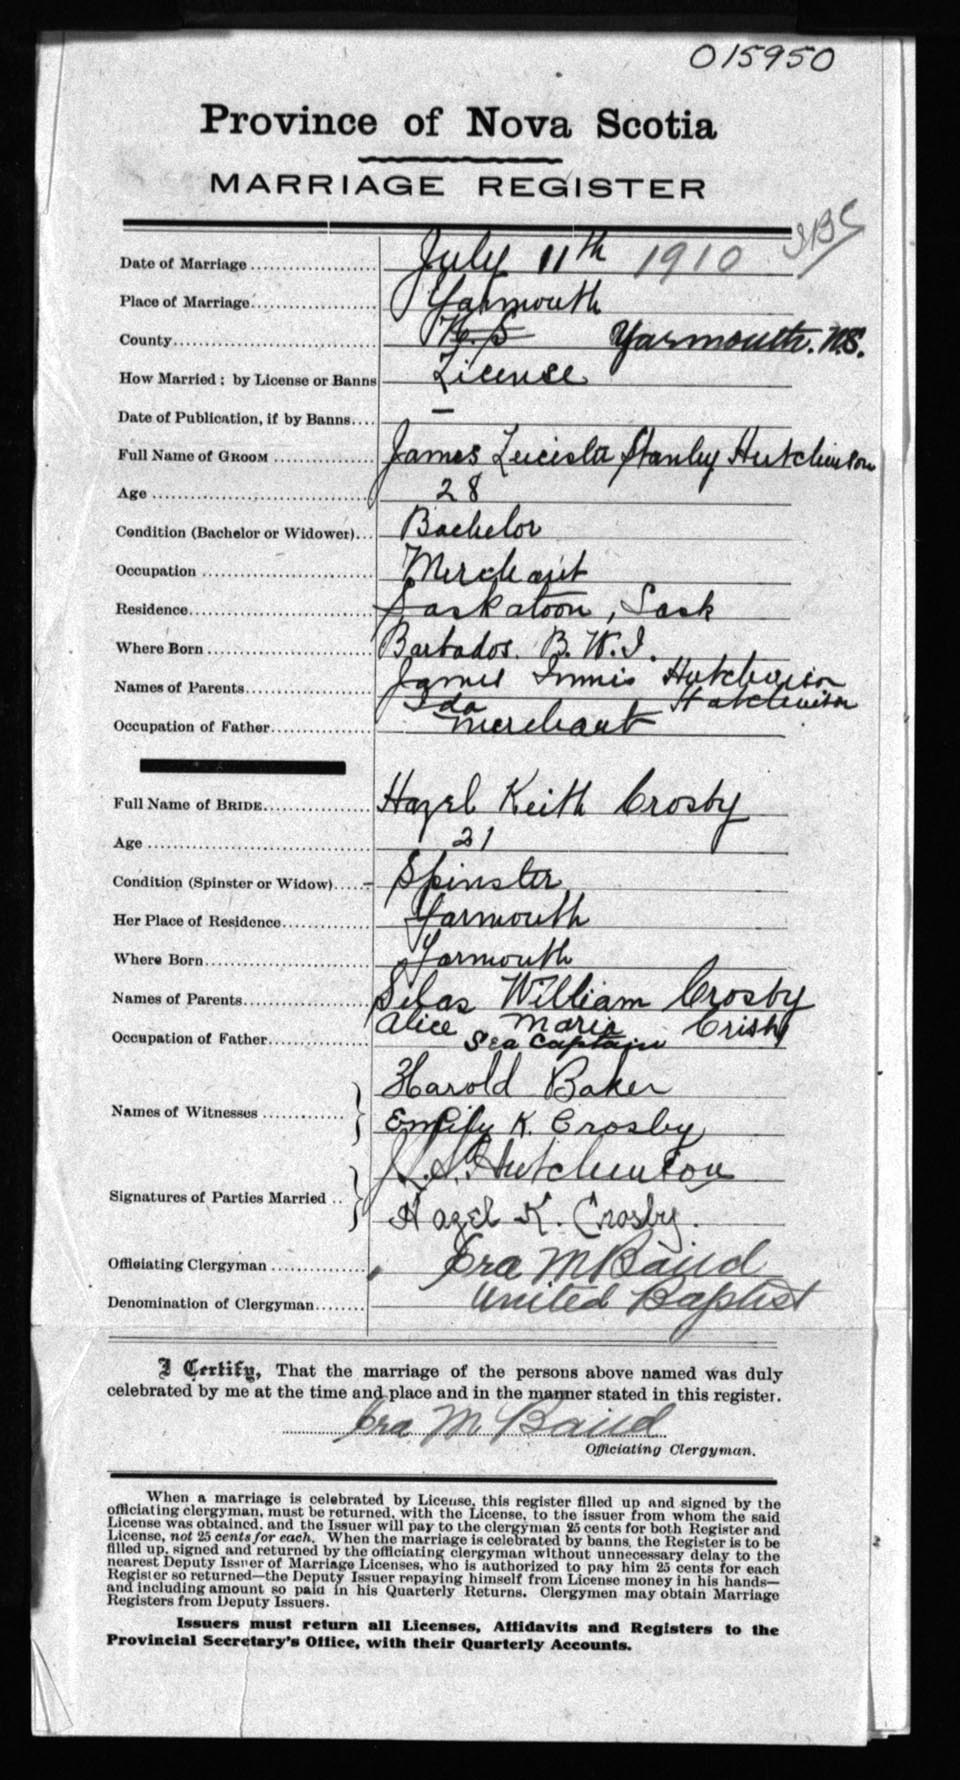 015950
Province of Nova Scotia
MARRIAGE REGISTER
Date of Marriage July 11th 1910
Place of Marriage Yarmouth
County N.S Yarmouth. N.S.
How Married: by License or Banns License
Date of Publication, if by Banns —
Full Name of GROOM James Stanley Hutchinson
Age 28
Condition (Bachelor or Widower) Bachelor
Occupation Merchant
Residence Saskatoon, Sask
Where Born Barbados. B. W. I.
Names of Parents James Innis Hutchinson
Ida Hutchinson
Occupation of Father Merchant
Full Name of BRIDE Hazel Keith Crosby
Age 21
Condition (Spinster or Widow) Spinster
Her Place of Residence Yarmouth
Where Born Yarmouth
Names of Parents Silas William Crosby
Alice Maria
Occupation of Father Sea Captain
Names of Witnesses Harold Baker
Emily K. Crosby
Signatures of Parties Married J. S. Hutchinson
Hazel K. Crosby.
Officiating Clergyman Ira M Baird
Denomination of Clergyman United Baptist
I Certify, That the marriage of the persons above named was duly
celebrated by me at the time and place and in the manner stated in this register.
Ira M Baird
Officiating Clergyman.
When a marriage is celebrated by License, this register filled up and signed by the
officiating clergyman, must be returned, with the License, to the issuer from whom the said
License was obtained, and the Issuer will pay to the clergyman 25 cents for both Register and
License, not 25 cents for each. When the marriage is celebrated by banns, the Register is to be
filled up, signed and returned by the officiating clergyman without unnecessary delay to the
nearest Deputy Issuer of Marriage Licenses, who is authorized to pay him 25 cents for each
Register so returned—the Deputy Issuer repaying himself from License money in his hands—
and including amount so paid in his Quarterly Returns. Clergymen may obtain Marriage
Registers from Deputy Issuers.
Issuers must return all Licenses, Affidavits and Registers to the
Provincial Secretary's Office, with their Quarterly Accounts.